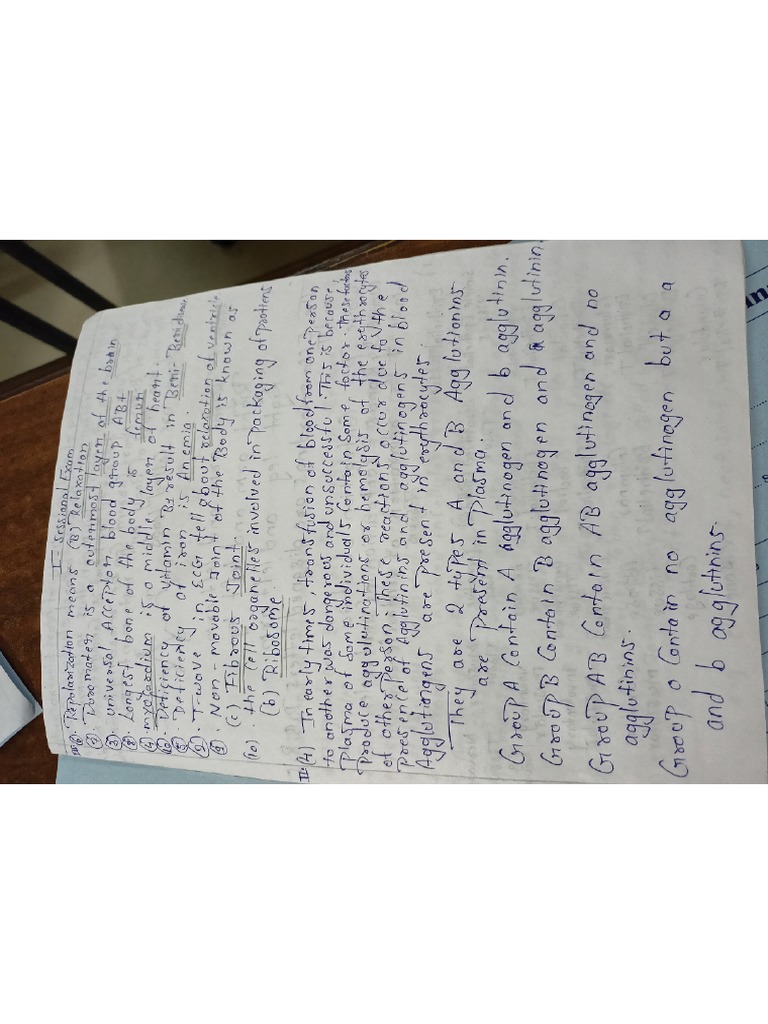 I- Sessional Exam
Repolarization means (B) Relaxation
Duramater is a outermost layer of the brain
universal Acceptor blood group AB+
Longest bone of the body is femur
myocardium is a middle layer of heart.
Deficiency of vitamin B1 result in Berri Berri
Deficiency of iron is Anemia.
T-wave in ECG tell about relaxation of ventricle
(9). Non-movable Joint of the Body is known as
(c) Fibrous Joint.
(10) . the cell organelles involved in packaging of protiens
(b) Ribosome
II(4) In early times, transfusion of blood from one person
to another was dangerous and unsuccessful. This is because
Plasma of some individuals contain some factor these factors
Produce agglutinations or hemolysis of the erythrocytes
of other Person. these reactions occur due to the
Presence of Agglutinins and agglutinogens in blood
Agglutinogens are present in erythrocytes.
They are 2 types A and B Agglutionins
are present in Plasma.
Group A Contain A agglutinogen and b agglutinin.
Group B Contain B agglutinogen and a agglutinin.
Group AB Contain AB agglutinogen and no
agglutinins.
Group O Contain no agglutinogen but a a
and b agglutinins.